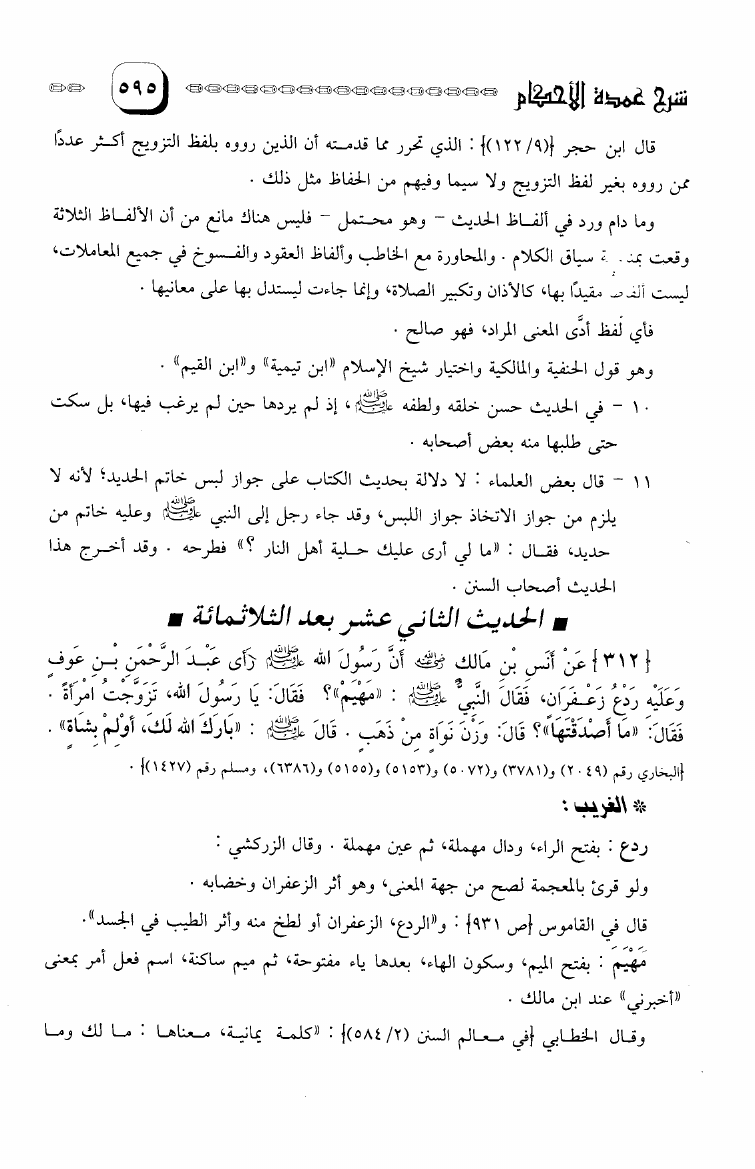 شرح عمدة الأحكام ٥٩٥
قال ابن حجر {(١٢٢/٩)} : الذي تحرر مما قدمته أن الذين رووه بلفظ التزويج أكثر عددًا
ممن رووه بغير لفظ التزويج ولا سيما وفيهم من الحفاظ مثل ذلك .
وما دام ورد في ألفاظ الحديث - وهو محتمل - فليس هناك مانع من أن الألفاظ الثلاثة
وقعت سياق الكلام . والمحاورة مع الخاطب وألفاظ العقود والفسوخ في جميع المعاملات،
ليست مقيدًا بها، كالأذان وتكبير الصلاة، وإنما جاءت ليستدل بها على معانيها .
فأي لفظ أدَّى المعنى المراد، فهو صالح .
وهو قول الحنفية والمالكية واختيار شيخ الإسلام «ابن تيمية» و«ابن القيم» .
١٠ - في الحديث حسن خلقه ولطفه ﷺ، إذ لم يردها حين لم يرغب فيها، بل سكت
حتى طلبها منه بعض أصحابه .
١١ - قال بعض العلماء : لا دلالة بحديث الكتاب على جواز لبس خاتم الحديد؛ لأنه لا
يلزم من جواز الاتخاذ جواز اللبس، وقد جاء رجل إلى النبي ﷺ وعليه خاتم من
حديد، فقال : «ما لي أرى عليك حلية أهل النار ؟» فطرحه . وقد أخرج هذا
الحديث أصحاب السنن .
■ الحديث الثاني عشر بعد الثلاثمائة ■
{٣١٢} عَنْ أَنَسِ بْنِ مَالك رضي الله عنه أَنَّ رَسُولَ الله ﷺ رَأى عَبْدَ الرَّحْمَنِ بْنِ عَوفٍ
وَعَلَيه رَدْعُ زَعْفَرانٍ، فَقَالَ النَّبيُّ ﷺ : «مَهْيَمْ»؟ فَقَالَ: يَا رَسُولَ الله، تَزَوَّجْتُ امْرأَةً .
فَقَالَ: «مَا أَصْدَقْتَهَا»؟ قَالَ: وَزْنَ نَوَاةٍ مِنْ ذَهَبٍ . قَالَ ﷺ : «بَارَكَ الله لَكَ، أَوْلِمْ بِشَاةٍ» .
{البخاري رقم (٢٠٤٩) و(٣٧٨١) و(٥٠٧٢) و(٥١٥٣) و(٥١٥٥) و(٦٣٨٦)، ومسلم رقم (١٤٢٧)} .
* الغريب :
ردع : بفتح الراء، ودال مهملة، ثم عين مهملة . وقال الزركشي :
ولو قرئ بالمعجمة لصح من جهة المعنى، وهو أثر الزعفران وخضابه .
قال في القاموس {ص ٩٣١} : و«الردع، الزعفران أو لطخ منه وأثر الطيب في الجسد».
مَهْيَمَ : بفتح الميم، وسكون الهاء، بعدها ياء مفتوحة، ثم ميم ساكنة، اسم فعل أمر بمعنى
«أخبرني» عند ابن مالك .
وقال الخطابي {في معالم السنن (٥٨٤/٢)} : «كلمة يمانية، معناها : ما لك وما